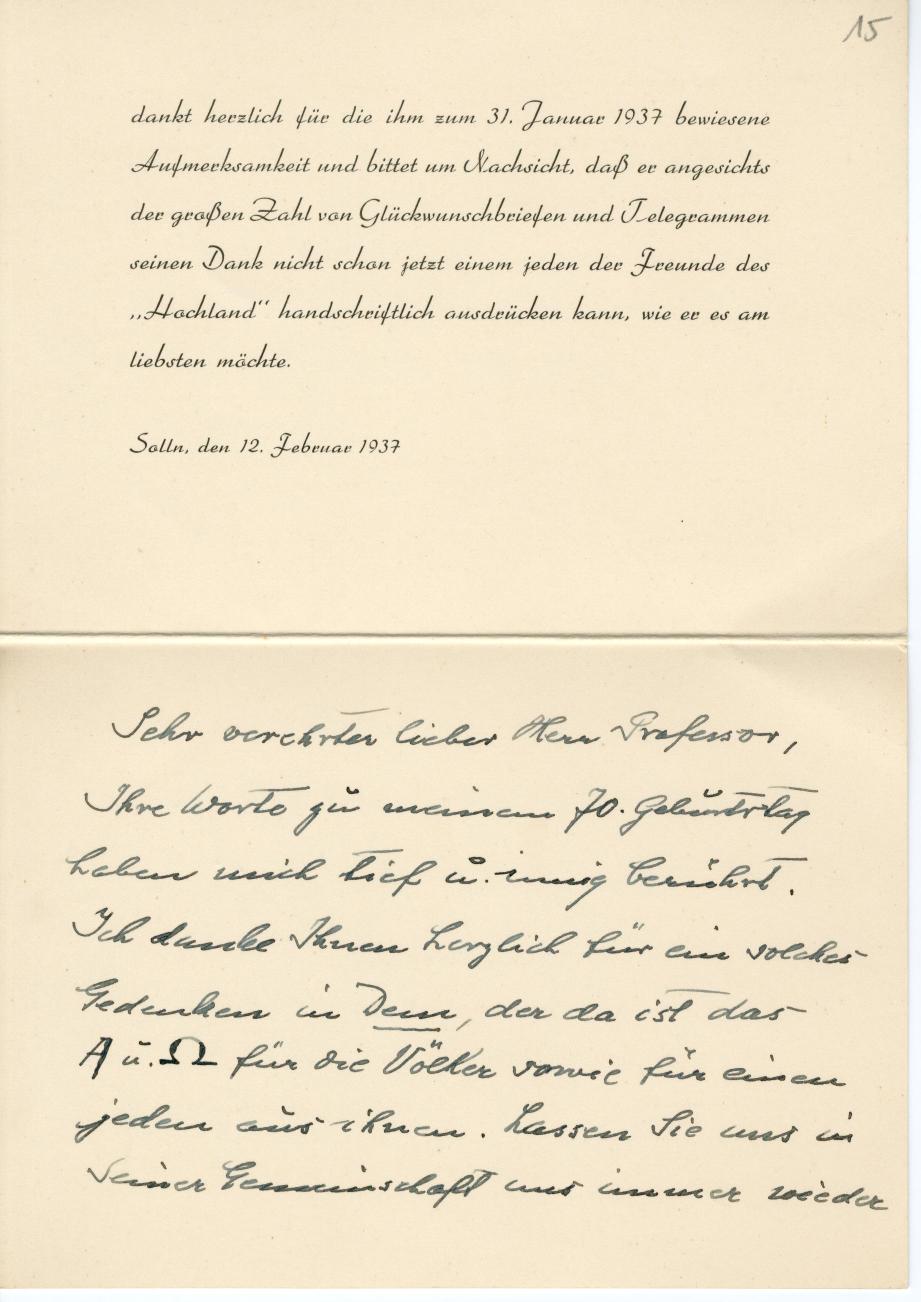 15
dankt herzlich für die ihm zum 31. Januar 1937 bewiesene
Aufmerksamkeit und bittet um Nachsicht, daß er angesichts
der großen Zahl von Glückwunschbriefen und Telegrammen
seinen Dank nicht schon jetzt einem jeden der Freunde des
„Hochland" handschriftlich ausdrücken kann, wie er es am
liebsten möchte.
Solln, den 12. Februar 1937
Sehr verehrter lieber Herr Professor,
Ihre Worte zu meinem 70. Geburtstag
haben mich tief u. innig berührt.
Ich danke Ihnen herzlich für ein solches
Gedenken in Dem, der da ist das
A u. Ω für die Völker sowie für einen
jeden aus ihnen. Lassen Sie uns in
seiner Gemeinschaft uns immer wieder